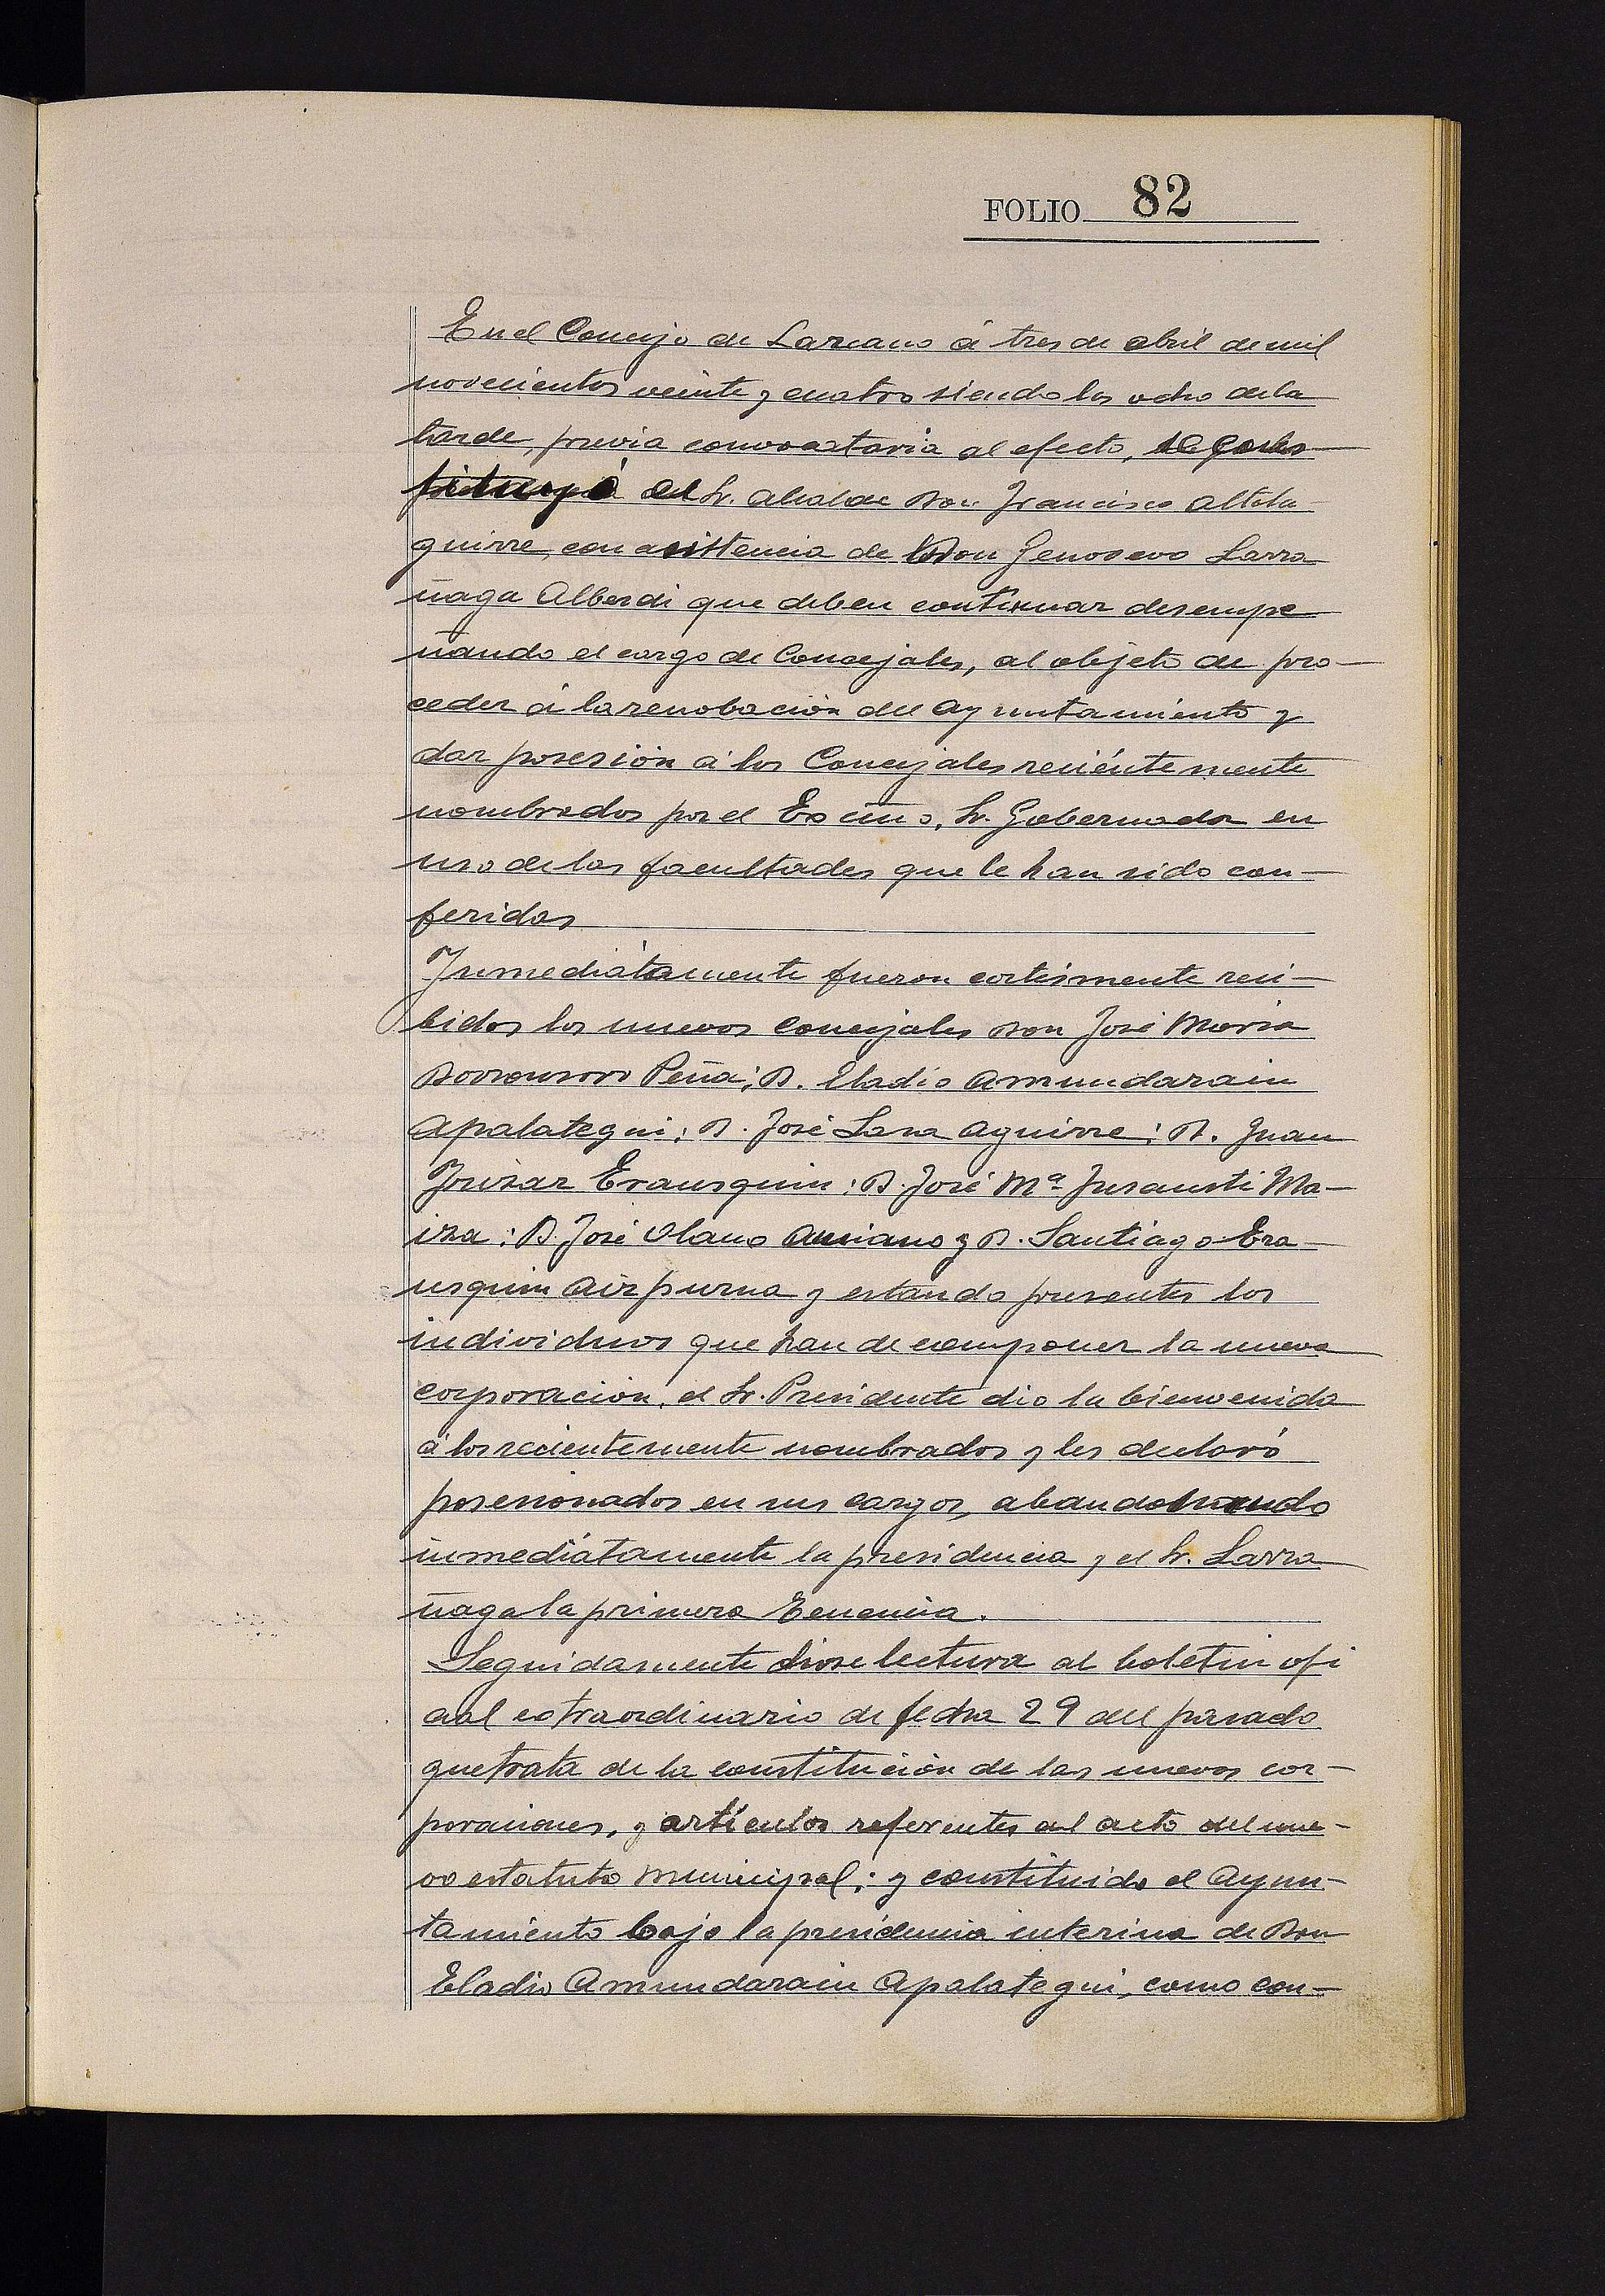 FOLIO 82
En el Concejo de Lazcano á tres de abril de mil
novecientos veinte y cuatro siendo las ocho de la
tarde, previa convocatoria al efecto, se cons
tituyó el Sr. Alcalde Don Francisco Altola
guirre, con asistencia de Don Genoveva Larra
ñaga Alberdi que deben continuar desempe
ñando el cargo de Concejales, al objeto de pro-
ceder á la renobación del Ayuntamiento y
dar posesión á los Concejales reciéntemente
nombrados por el Excmo. Sr. Gobernador en
uso de las facultades que le han sido con-
feridas
Inmediátamente fueron cortésmente reci-
bidos los nuevos concejales Don José Maria
Peña; D. Eladio Amundarain
Apalategui; D. José Lasa Aguirre; D. Juan
Irizar Erausquin; D. José Mª Insausti Ma-
iza; D. José Olano Auciano y D. Santiago Era-
usquin Aizpurua y estando presentes los
individuos que han de componer la nueva
corporación, el Sr. Presidente dio la bienvenida
á los recientemente nombrados y les declaró
posesionados en sus cargos, abandonando
inmediátamente la presidencia y el Sr. Larra
ñaga la primera Tenencia.
Seguidamente diose lectura al boletin ofi
cial extraordinario de fecha 29 del pasado
que trata de la constitución de las nuevas cor-
poraciones, y artículos referentes al acto del nue-
vo estatuto municipal; y constituido el Ayun-
tamiento bajo la presidencia interina de Don
Eladio Amundarain Apalategui, como con-